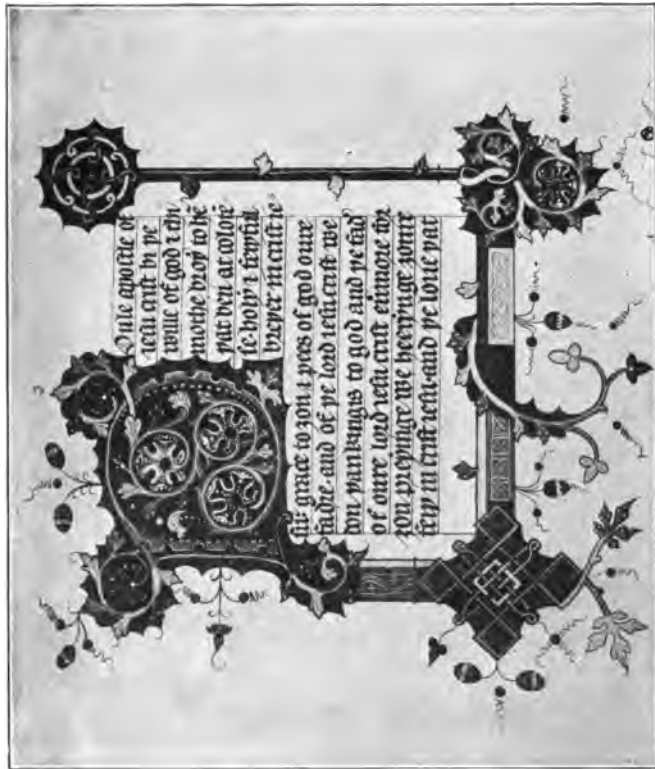 Oule apostle of
iesu crist bi þe
wille of god ⁊ thi
mothe broþ to hē
þat ben at colose
se hooly ⁊ feiþful
briþer in crist ie
su: grace to ȝou ⁊ pees of god oure
fadir. and of þe lord iesu crist we
don þankingis to god and þe fad'
of oure lord iesu crist euermore for
ȝou preiynge we heerynge ȝoure
feiþ in crist iesu. and þe loue þat